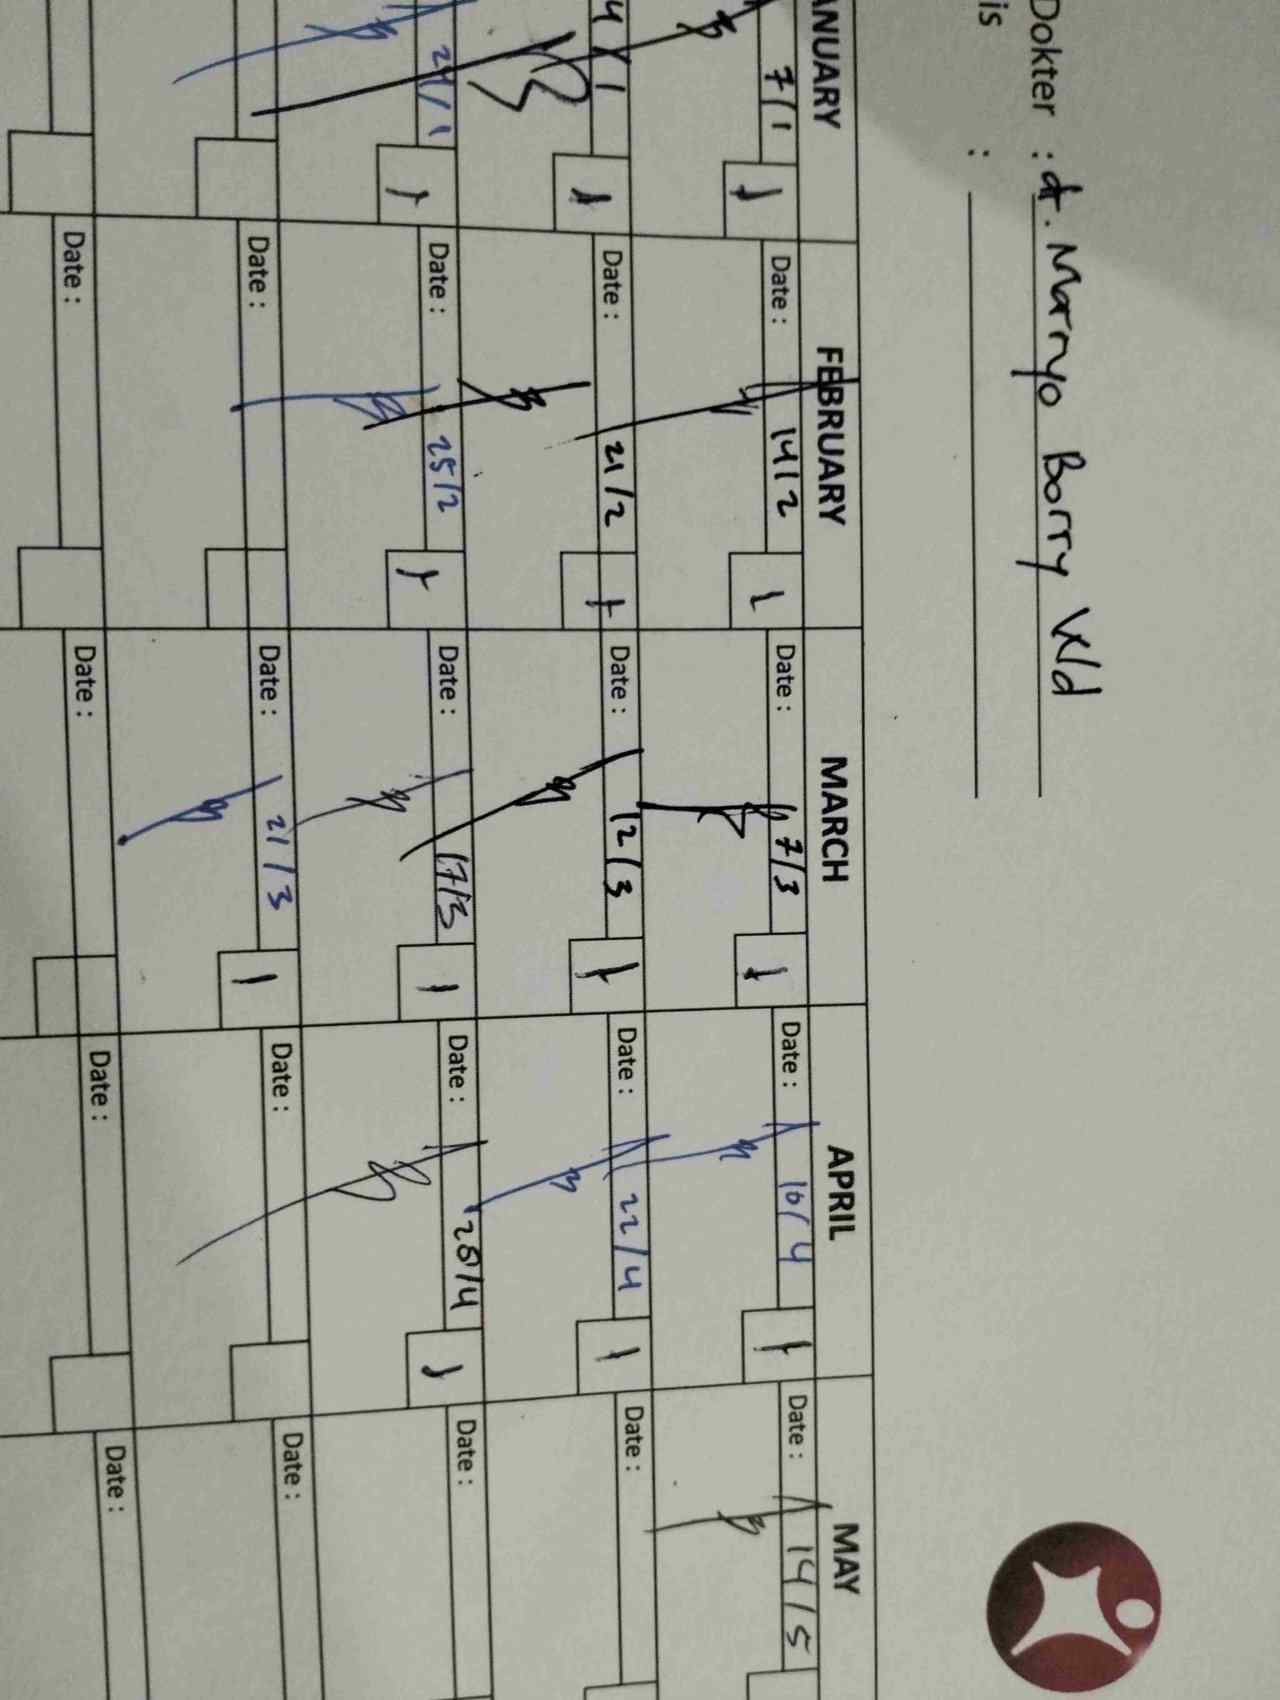 Dokter : dr. Marryo Borry Wd
is :
ANUARY FEBRUARY MARCH APRIL MAY
7/1 1 Date : 14/2 1 Date : 7/3 1 Date : 16/4 1 Date : 14/5
4/1 1 Date : 21/2 1 Date : 12/3 1 Date : 22/4 1 Date :
24/1 1 Date : 25/2 1 Date : 17/3 1 Date : 28/4 1 Date :
Date : Date : 21/3 1 Date : Date :
Date : Date : Date : Date :